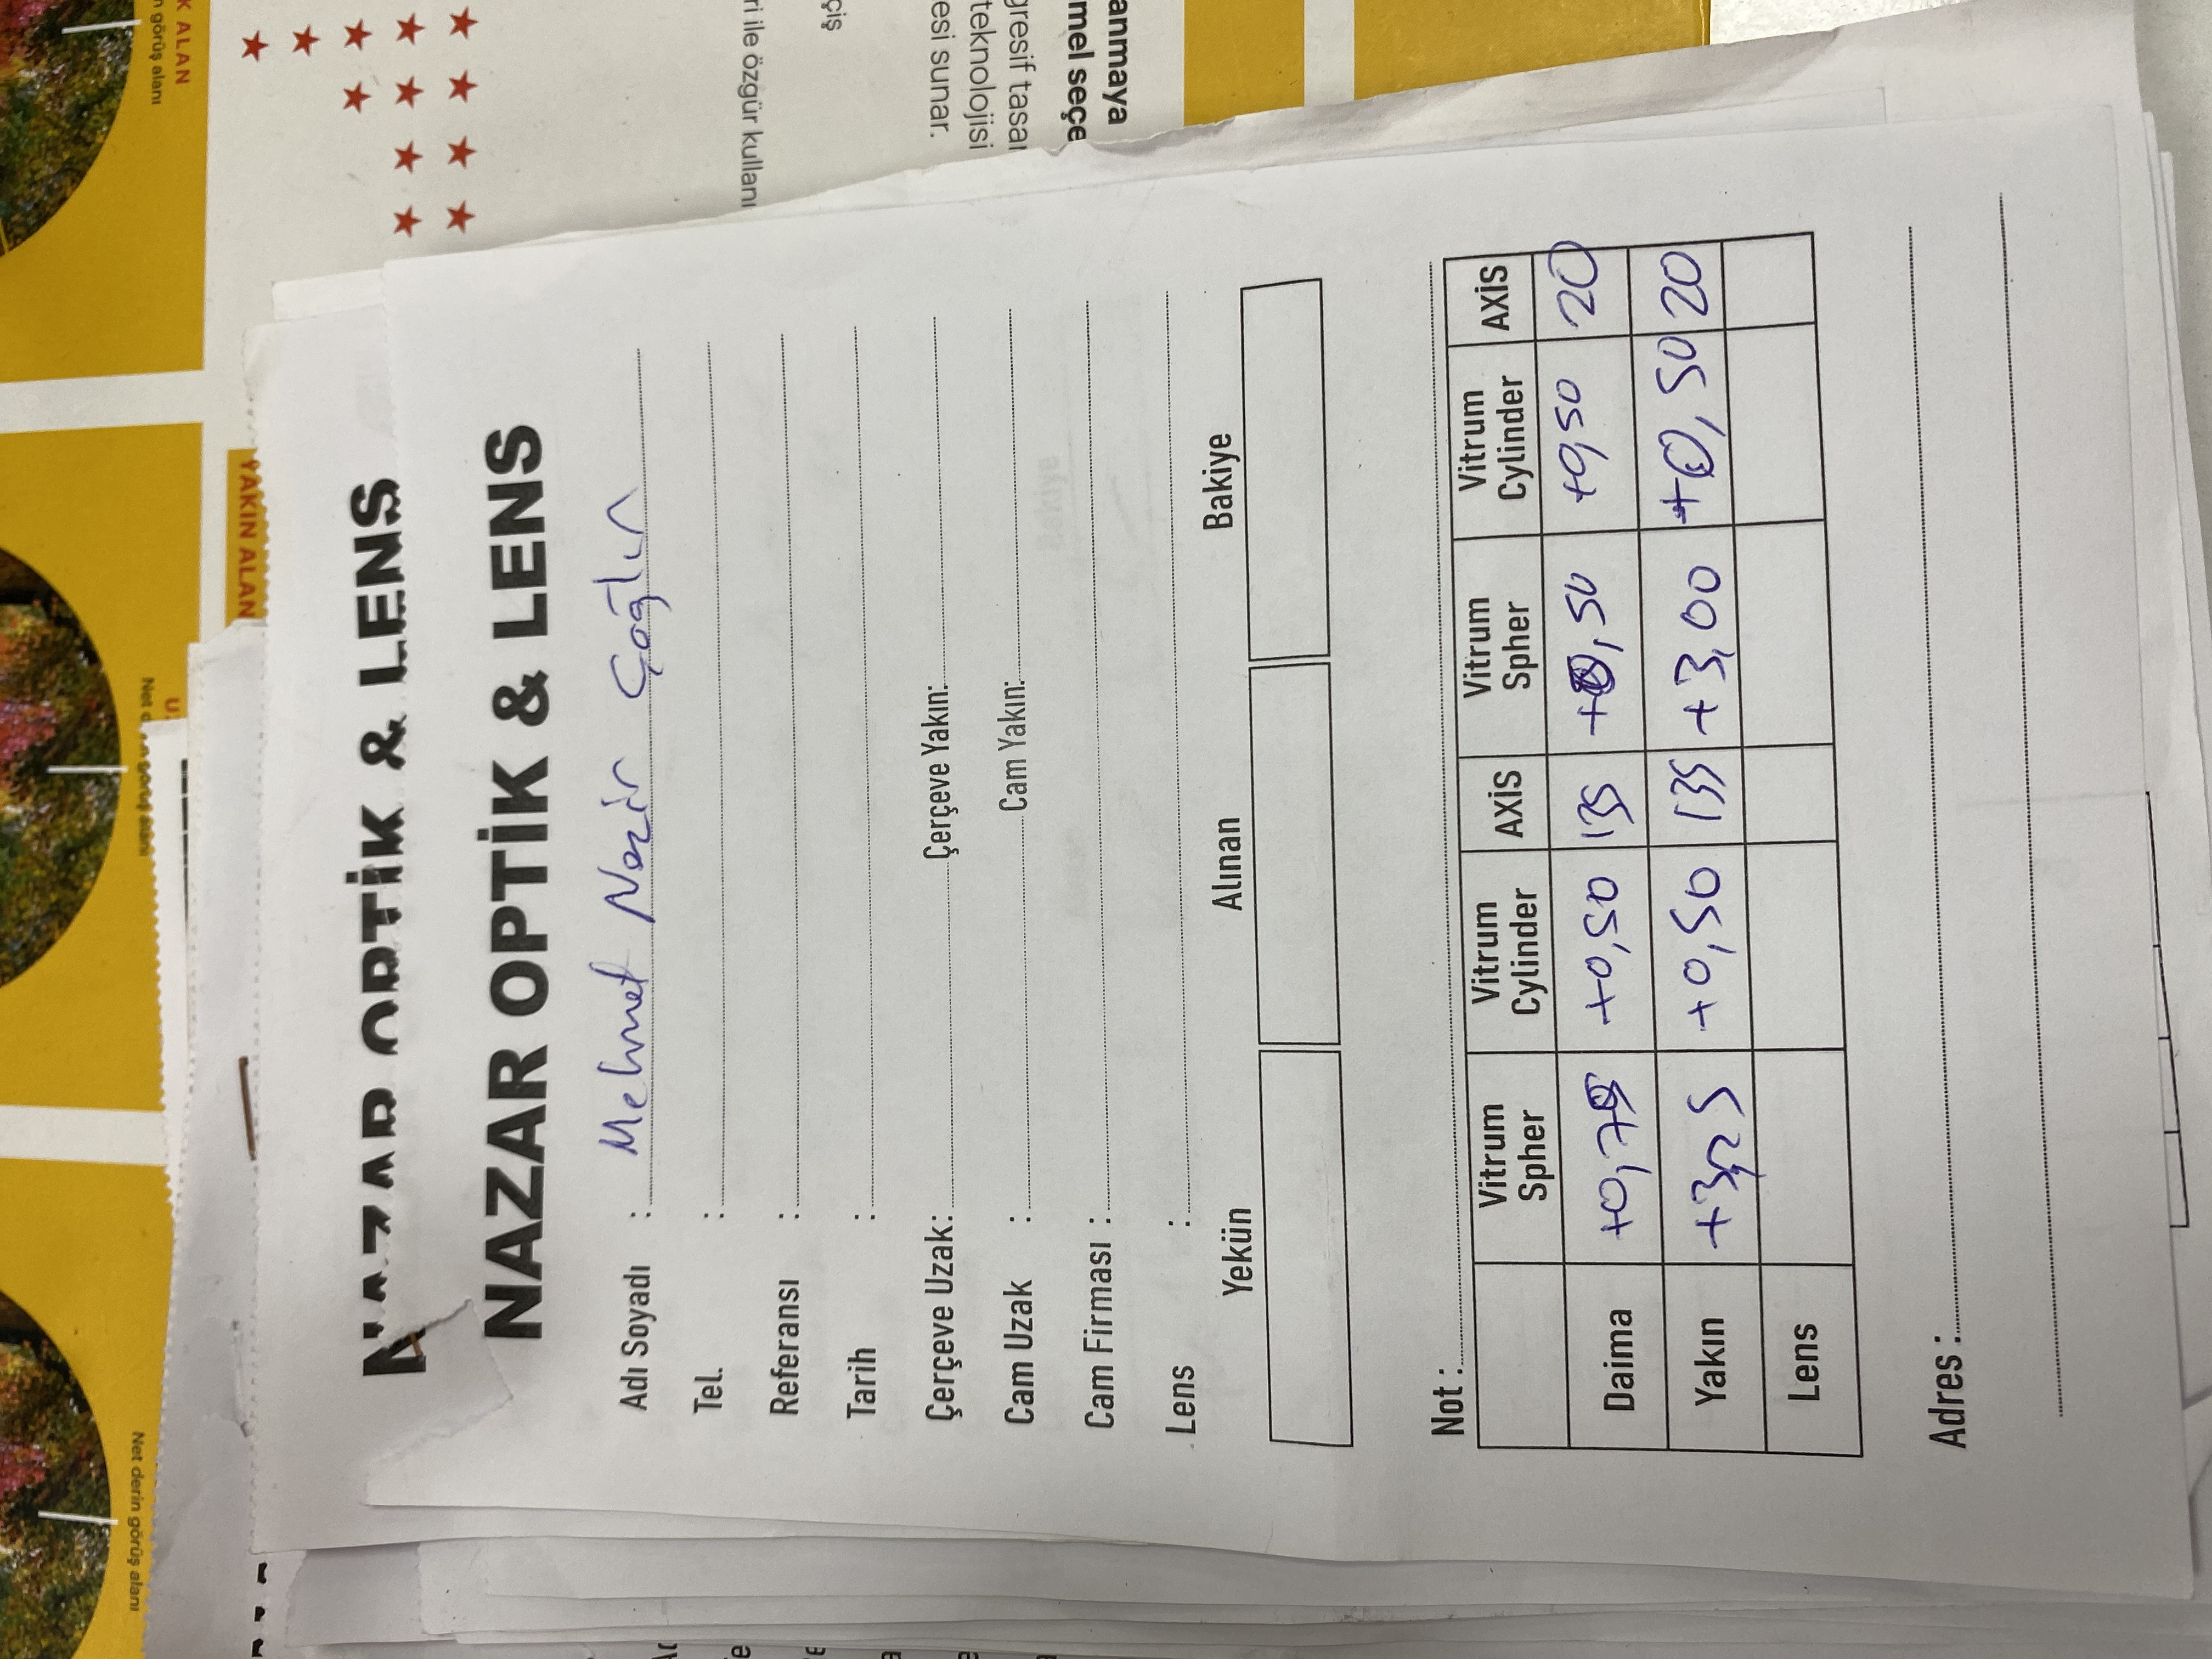 Net derin görüş alanı
görüş alanı
K ALAN
YAKIN ALAN
NAZAR OPTİK & LENS
NAZAR OPTİK & LENS
Adı Soyadı : Mehmet Nazir Çağlın
Tel. :
Referansı :
Tarih :
Çerçeve Uzak: Çerçeve Yakın:
Cam Uzak : Cam Yakın:
Cam Firması :
Lens :
Yekün Alınan Bakiye
Not :
Vitrum Spher Vitrum Cylinder AXİS Vitrum Spher Vitrum Cylinder AXİS
Daima +0,75 +0,50 135 +0,50 +0,50 20
Yakın +3,25 +0,50 135 +3,00 +0,50 20
Lens
Adres :
ri ile özgür kullanı
çiş
esi sunar.
teknolojisi
gresif tasar
mel seçe
anmaya